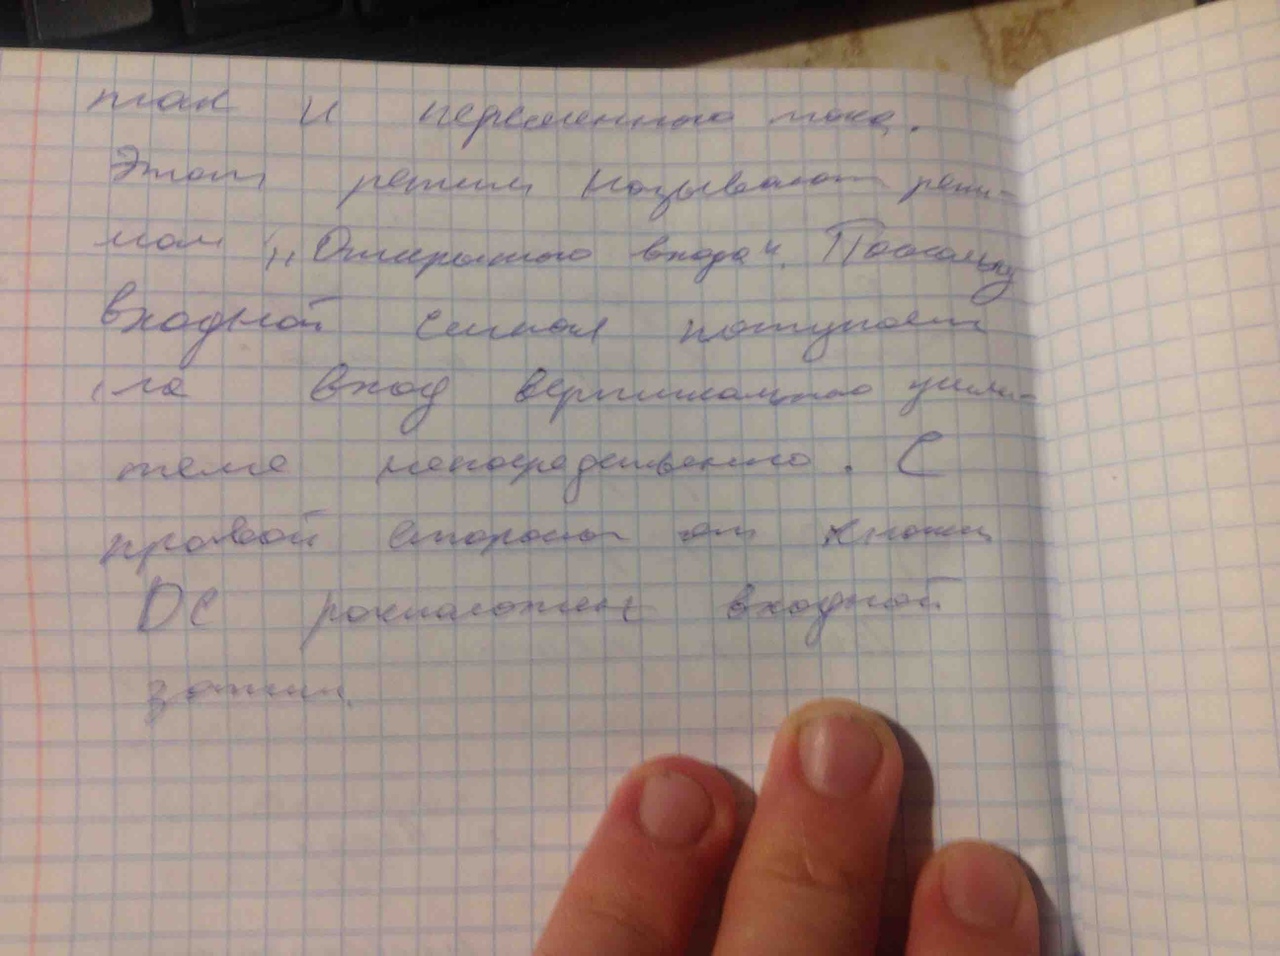 так и переменного тока.
Этот режим называют режи-
мом „Открытого входа". Поскольку
входной сигнал поступает
на вход вертикального усили-
теля непосредственно. С
правой стороны от кнопки
DC расположен входной
зажим.